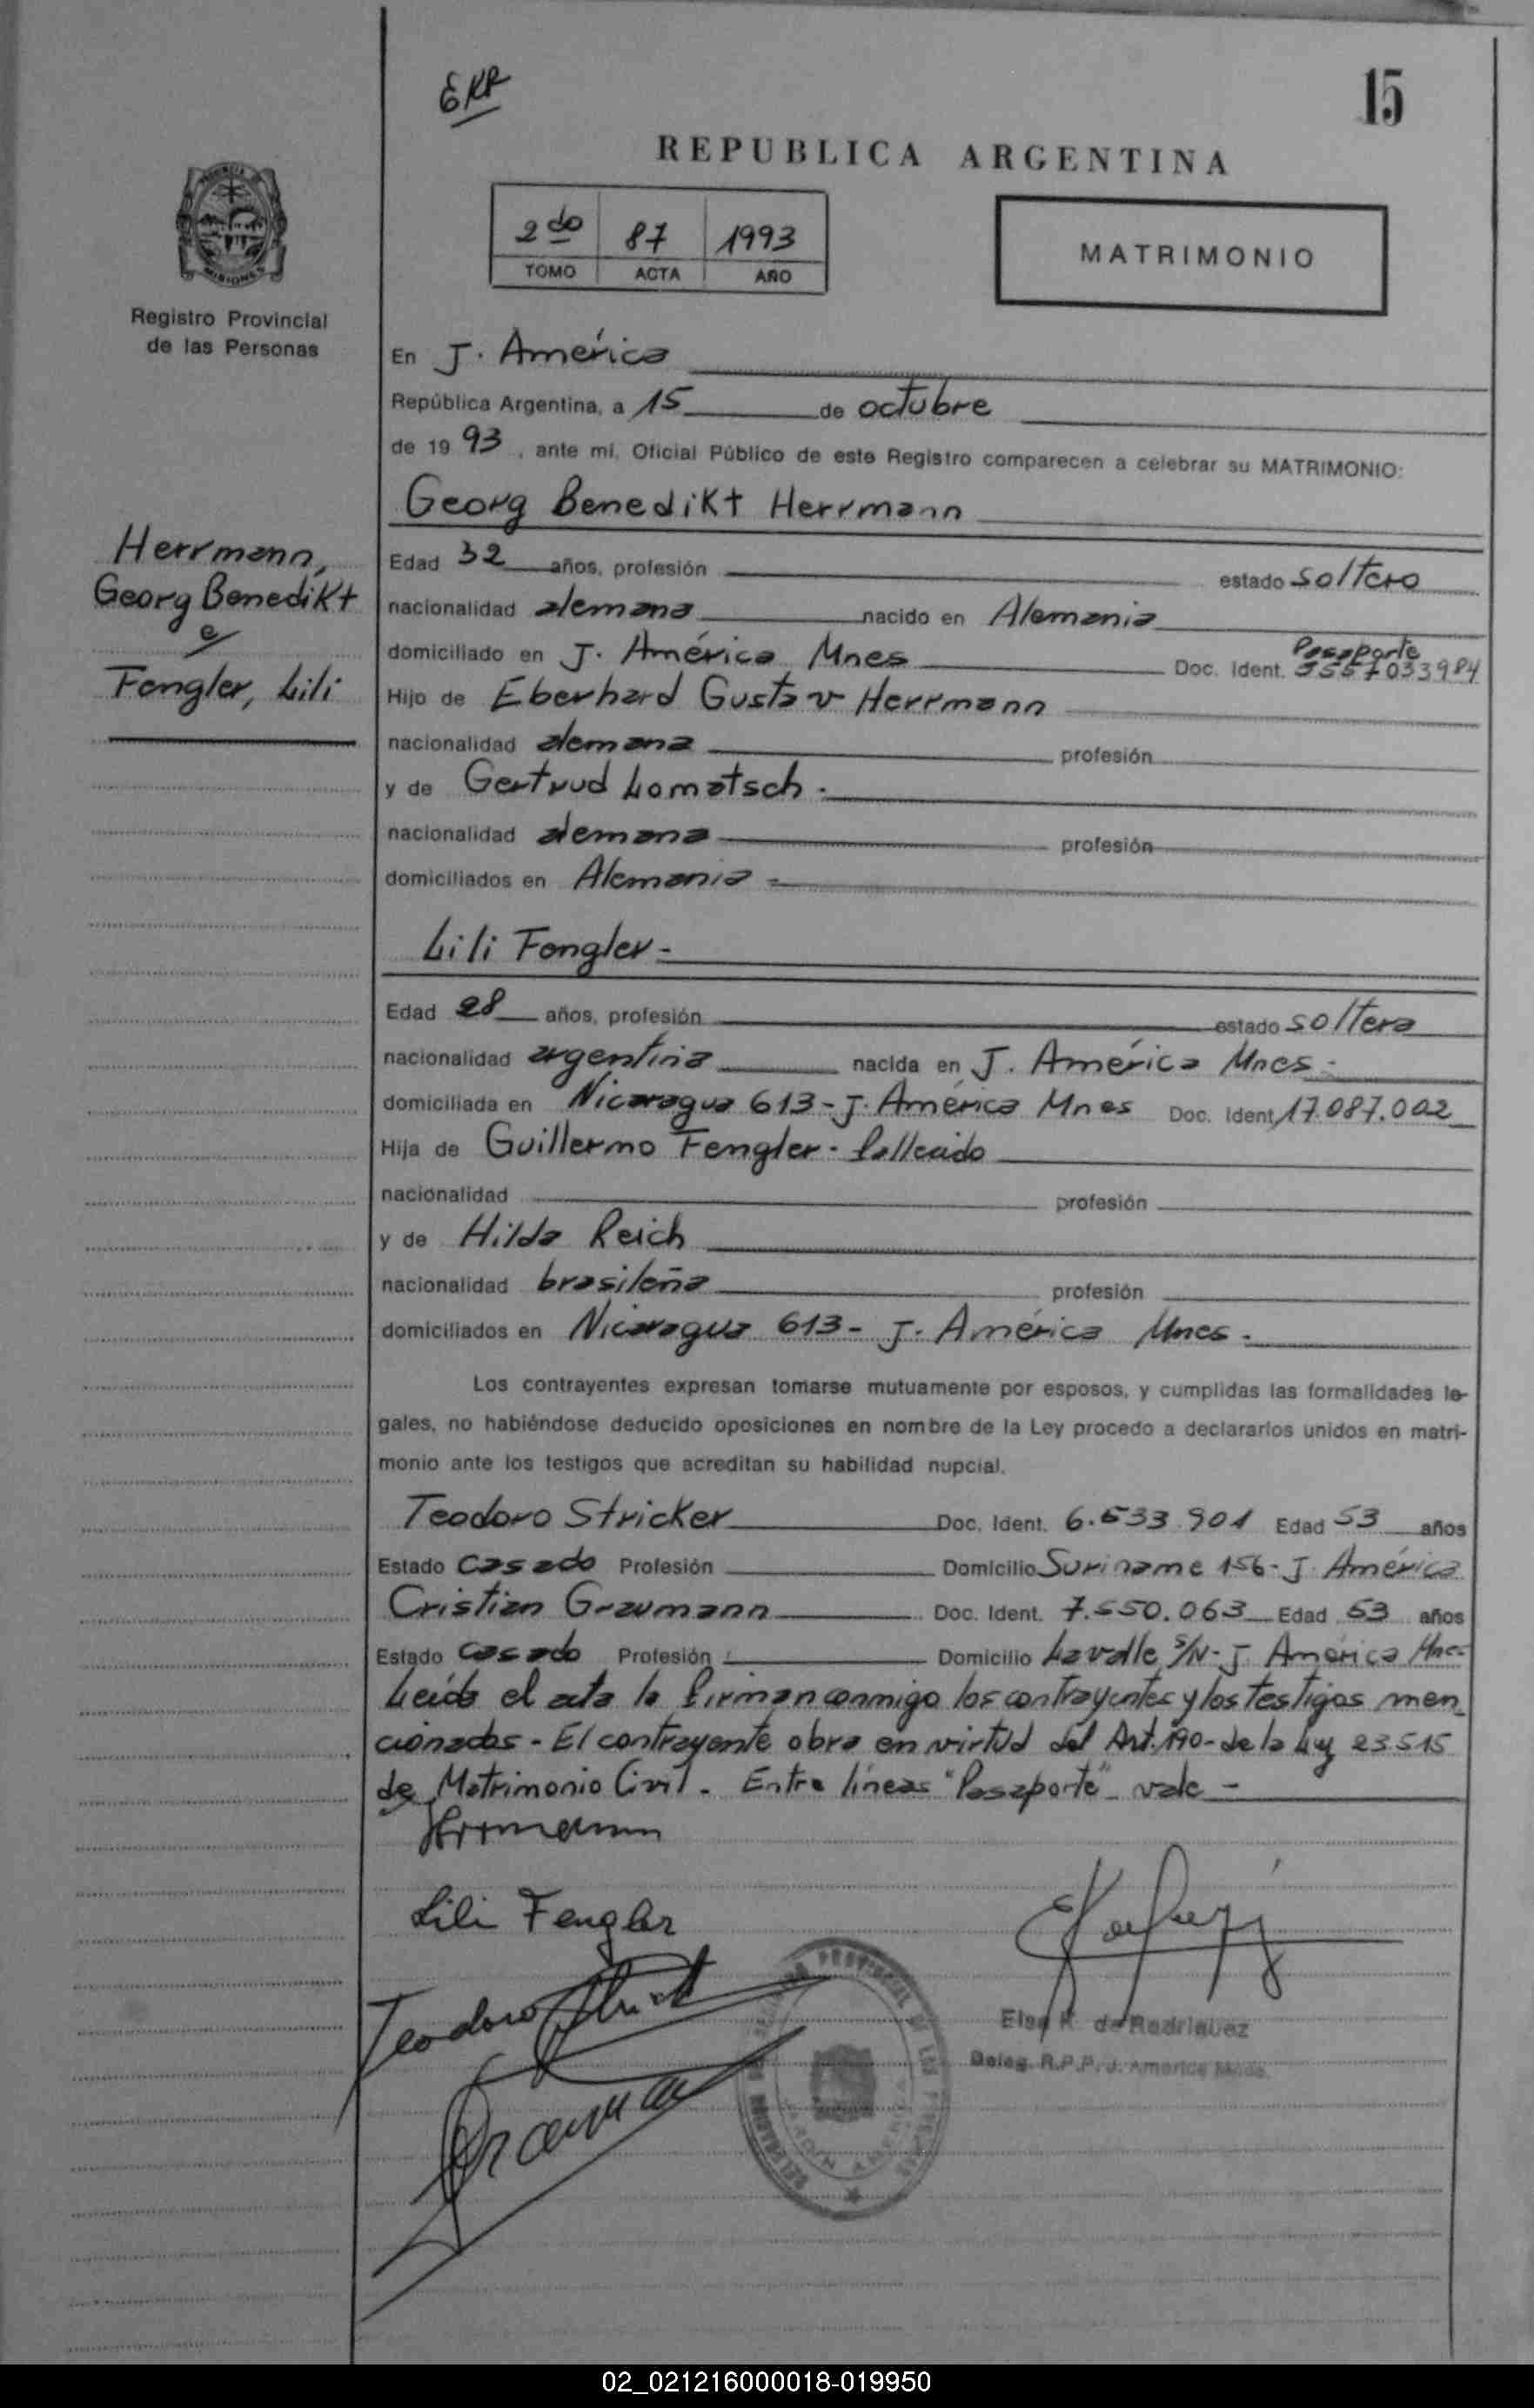 EKR
15
REPUBLICA ARGENTINA
2do 87 1993
TOMO ACTA AÑO
MATRIMONIO
MISIONES
Registro Provincial
de las Personas
En J. América
República Argentina, a 15 de octubre
de 19 93, ante mí, Oficial Público de este Registro comparecen a celebrar su MATRIMONIO:
Georg Benedikt Herrmann
Herrmann,
Georg Benedikt
e/
Fengler, Lili
Edad 32 años, profesión estado soltero
nacionalidad alemana nacido en Alemania
domiciliado en J. América Mnes Doc. Ident. Pasaporte
Hijo de Eberhard Gustav Herrmann
nacionalidad alemana profesión
y de Gertrud Lomatsch.
nacionalidad alemana profesión
domiciliados en Alemania -
Lili Fengler -
Edad 28 años, profesión estado soltera
nacionalidad argentina nacida en J. América Mnes -
domiciliada en Nicaragua 613 - J. América Mnes Doc. Ident. 17.087.002
Hija de Guillermo Fengler - fallecido
nacionalidad profesión
y de Hilda Reich
nacionalidad brasileña profesión
domiciliados en Nicaragua 613 - J. América Mnes.
Los contrayentes expresan tomarse mutuamente por esposos, y cumplidas las formalidades le-
gales, no habiéndose deducido oposiciones en nombre de la Ley procedo a declararlos unidos en matri-
monio ante los testigos que acreditan su habilidad nupcial.
Teodoro Stricker Doc. Ident. 6.533.901 Edad 53 años
Estado casado Profesión Domicilio Suriname 156 - J. América
Cristian Graumann Doc. Ident. 7.550.063 Edad 53 años
Estado casado Profesión Domicilio Lavalle S/N - J. América Mnes
Leída el acta la firman conmigo los contrayentes y los testigos men
cionados - El contrayente obra en virtud del Art. 190 - de la Ley 23.515
de Matrimonio Civil - Entre líneas "Pasaporte" vale -
Herrmann
Lili Fengler
Teodoro Strick
Grauman
Elsa K. de Rodriguez
Deleg. R.P.P. J. America Mnes.
02_021216000018-019950